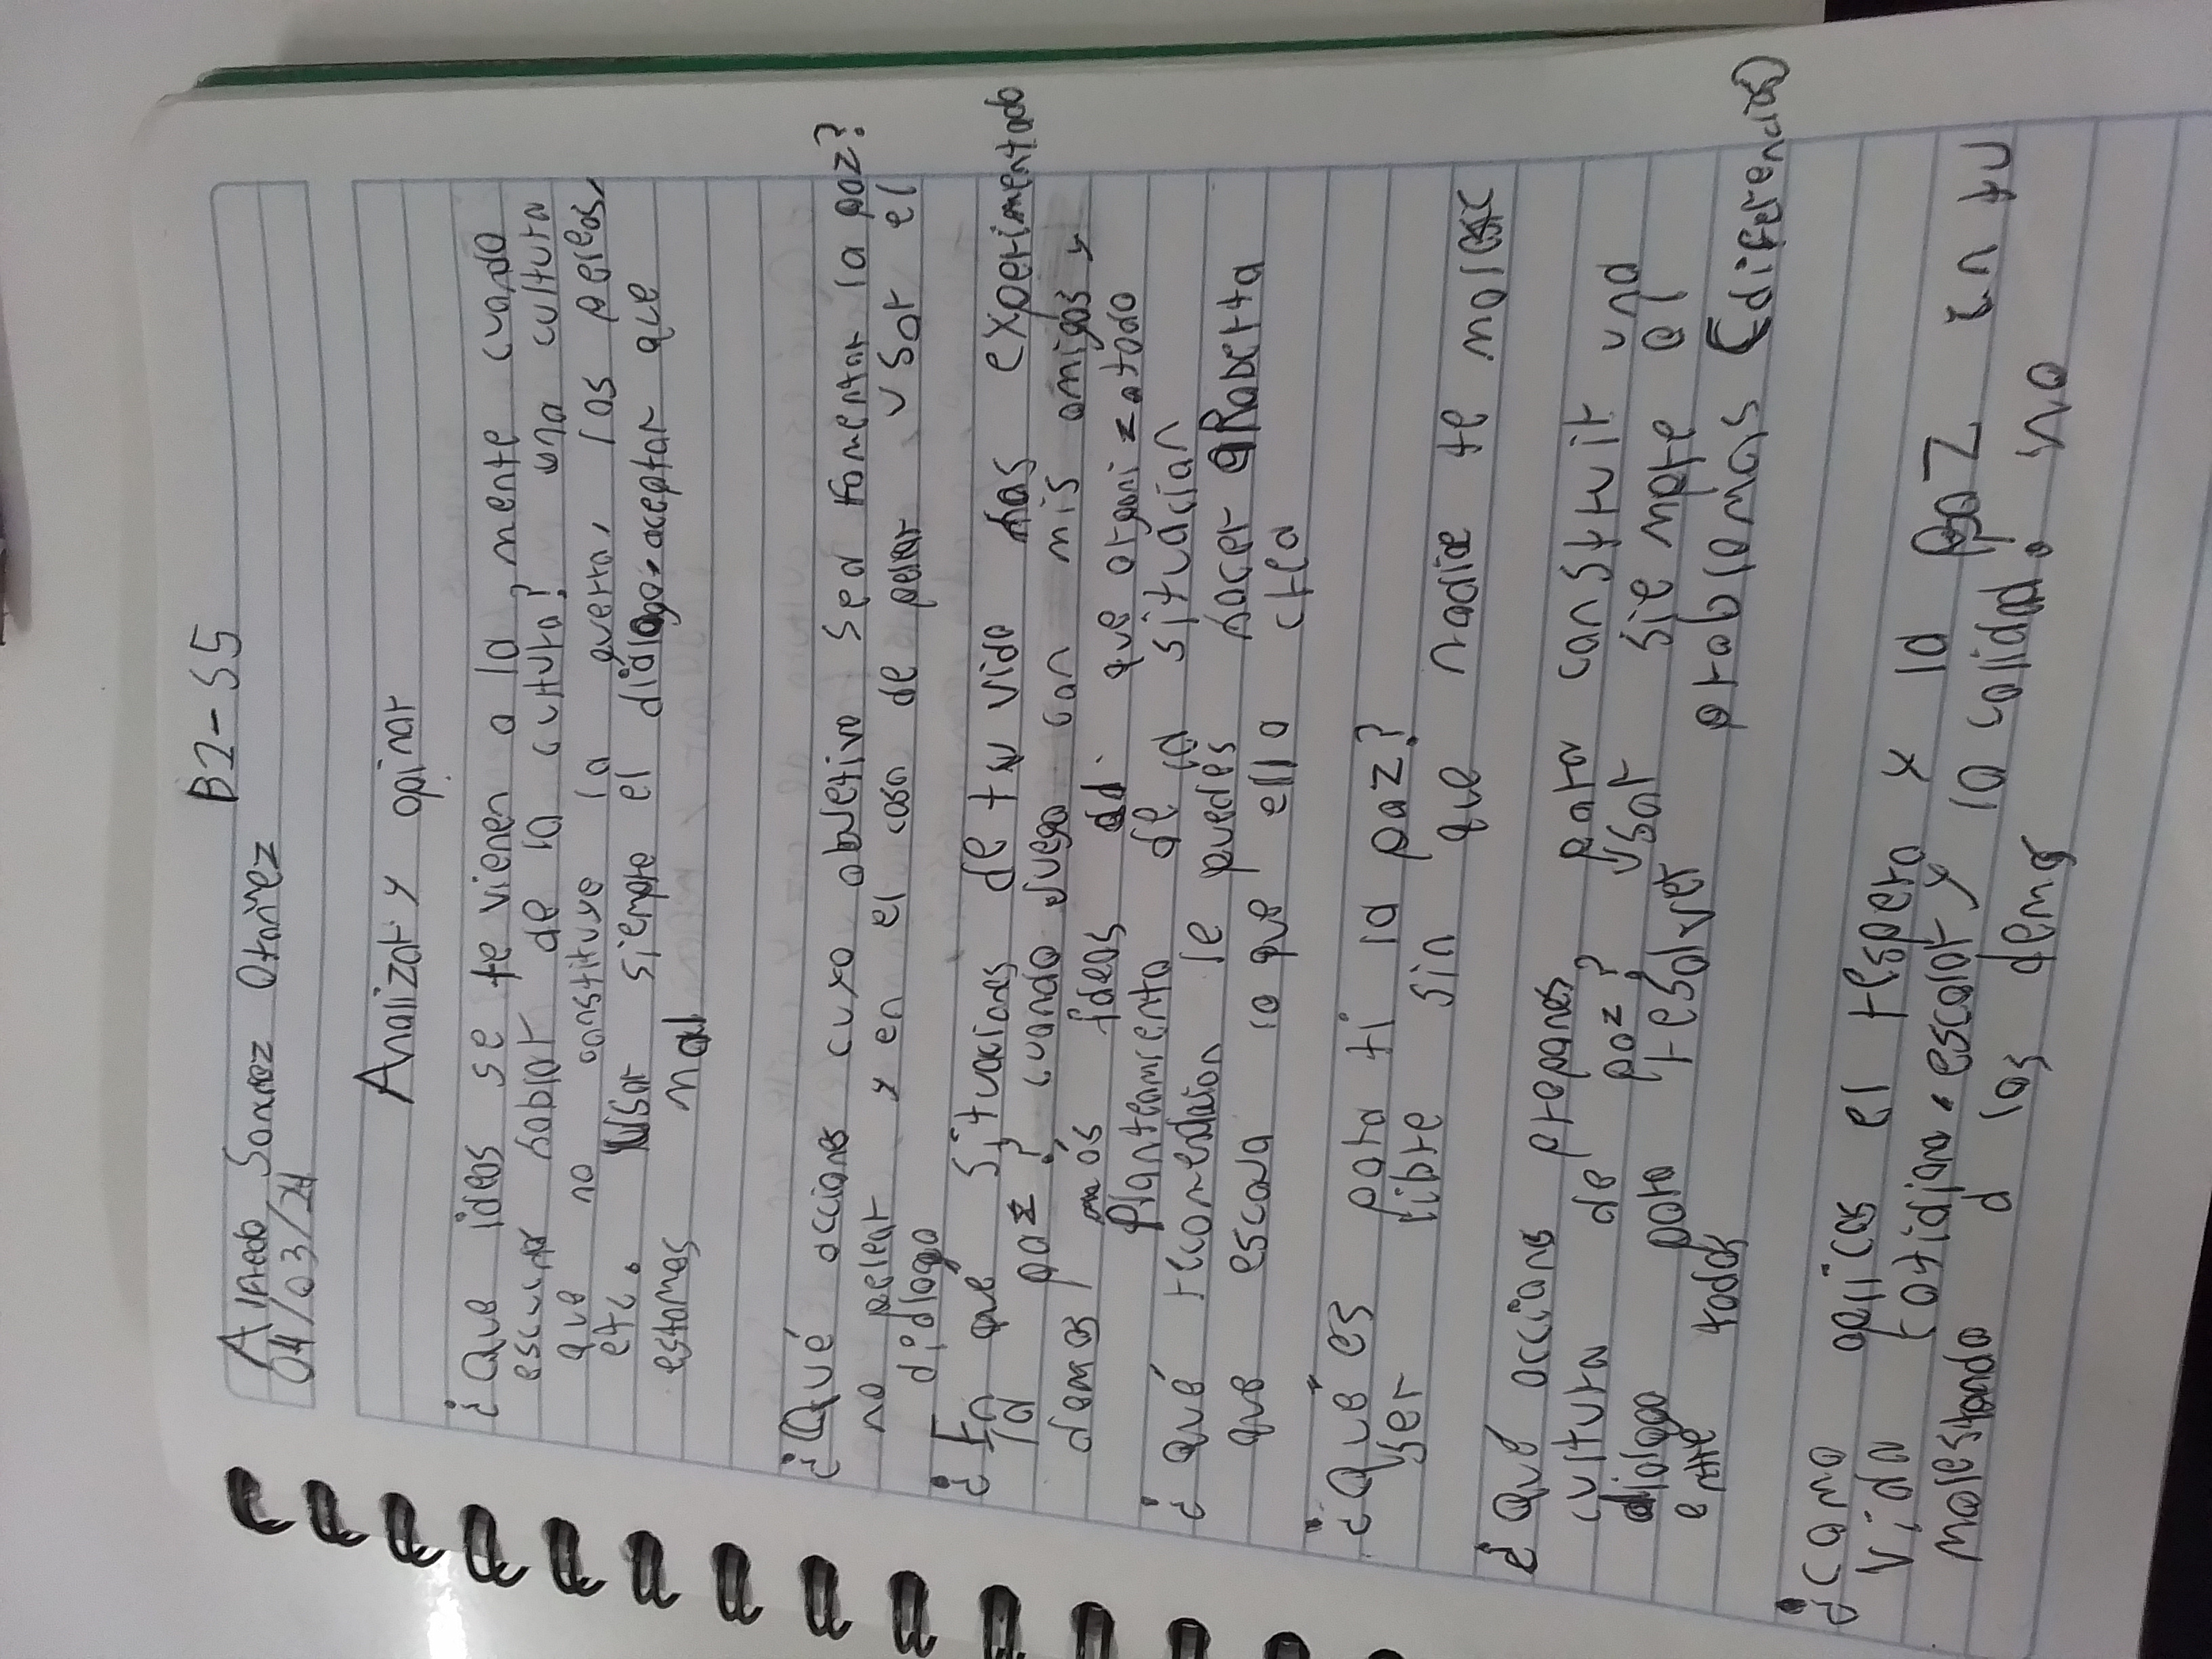 B2-S5
Alfredo Sanxez Otañez
04/03/24
Analizar y opinar
¿Que ideas se te vienen a la mente cuando
escuchas hablar de la cultura? una cultura
que no constituye la guerra, las peleas,
etc. Usar siempre el diálogo, aceptar que
estamos mal
¿Qué acciones cuyo objetivo sea fomentar la paz?
no pelear y en el caso de pelear, usar el
diálogo
¿En que situaciones de tu vida has experimentado
la paz? cuando juego con mis amigos y
damos más ideas que organizatodo
Planteamiento de la situacian
¿qué recomendation le puedes hacer a Roberta
que escova lo que ella crea
¿Qué es para ti la paz?
ser libre sin que nadie te moleste
¿Qué accions prepanas para construir una
cultura de paz? usar siempre el
diálogo para resolver problomas (diferencias)
entre todos
¿como aplicas el respero y la paz En tu
Vida cotidiana. escolar, y la calidad. no
molestando a los demas